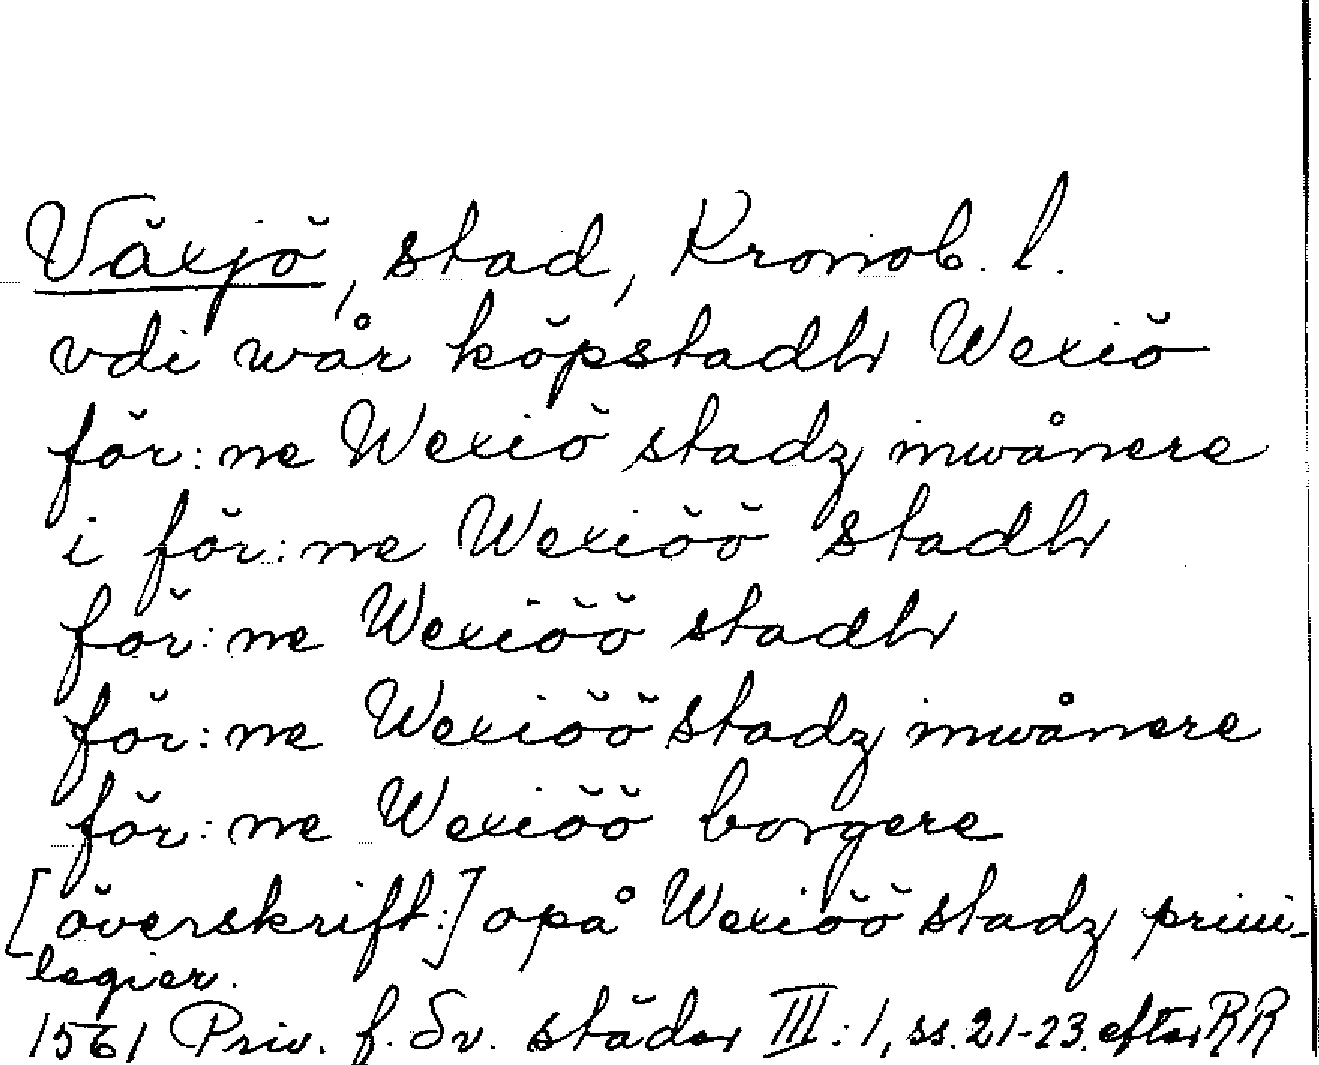 Växjö, stad, Kronob. l.
vdi wår köpstadh Wexiö
för:ne Wexiö stadz inwånere
i för:ne Wexiöö stadh
för:ne Wexiöö stadh
för:ne Wexiöö stadz inwånere
för:ne Wexiöö borgere
[överskrift:] opå Wexiöö stadz priui-
legier.
1561 Priv. f. Sv. städer III:1, ss. 21-23. efter RR